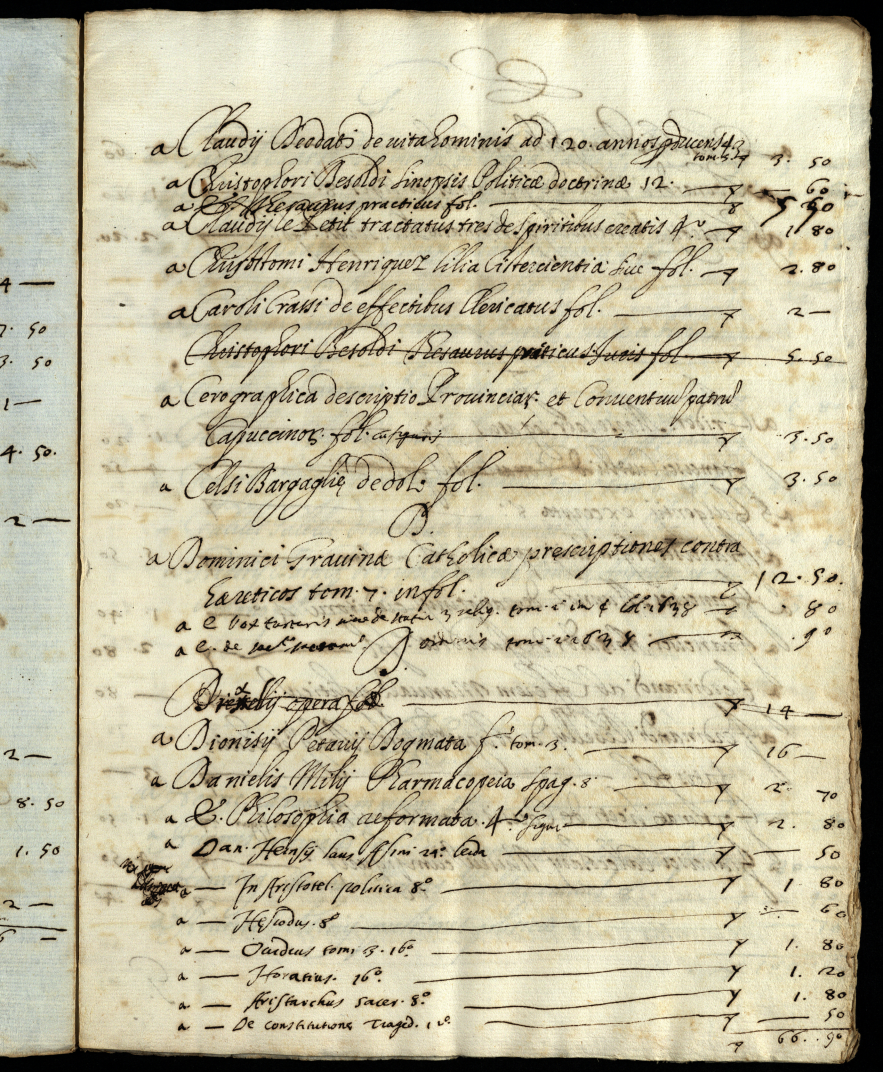 4 —
7. 50
3. 50
1 —
4. 50.
2 —
2 —
8. 50
1. 50
2 —
6 —
a Claudij Deodati de vita hominis ad 120. annos producens 4
tom. 3. 50
a Christophori Besoldi Sinopsis Politicæ doctrinæ 12. — 60
a & Thesaurus practicus fol. — 5 50
a Claudij le Petit tractatus tres de Spiritibus creatis 4.º — 1. 80
a Chrisostomi Henriquez lilia Cistercientia siue fol. — 2. 80
a Caroli Crassi de effectibus Clericatus fol. — 2 —
Christophori Besoldi Thesaurus praticus Juris fol — 5. 50
a Cerographica descriptio Provinciar. et Conventuū patrū
Capuccinor. fol. cū figuris — 3. 50
a Celsi Bargaglię de dolo fol. — 3. 50
D.
a Dominici Gravinæ Catholicæ prescriptiones contra
hæreticos tom. 7. in fol. — 12. 50.
a E Vox turturis tom. 1638 — 80
a E. de — . 90
D.
Drexelij opera fol. — 14 —
a Dionisij Petavij Dogmata f. tom. 3. — 16 —
a Danielis Milij Pharmacopeia Spag. 8 — 2. 70
a &. Philosophia reformata. 4.º figur — 2. 80
a Dan. Heinsij laus Asini 24.º leida — 50
a — In Aristotel. politica 8.º — 1. 80
a — Hesiodus. 8.º — 60
a — Ouidius tomi 3. 16.º — 1. 80
a — Horatius. 16.º — 1. 20
a — Aristarchus Sacer. 8.º — 1. 80
a — De constitutione Traged. 12.º — 50
66. 90